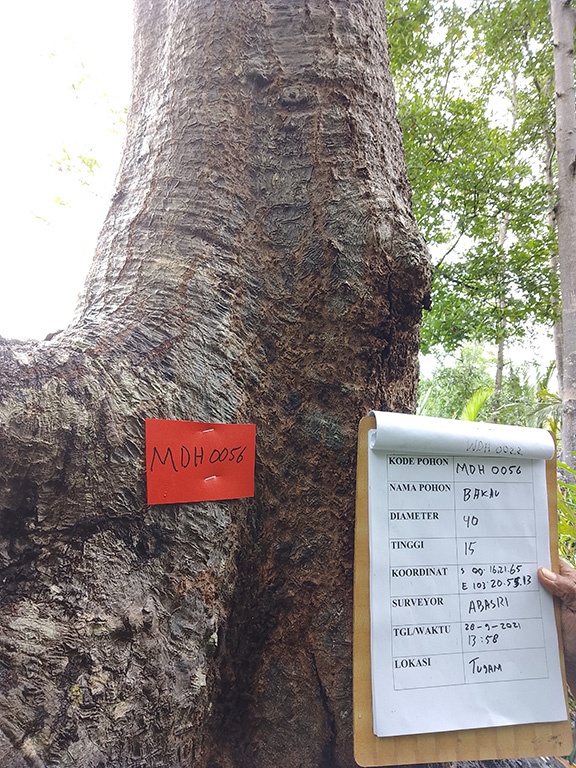 MDH 0056
WDH 0022
KODE POHON MDH 0056
NAMA POHON BAKAU
DIAMETER 40
TINGGI 15
KOORDINAT S 00:16.21.65
E 103:20.55.13
SURVEYOR ABASRI
TGL/WAKTU 28-9-2021
13:58
LOKASI